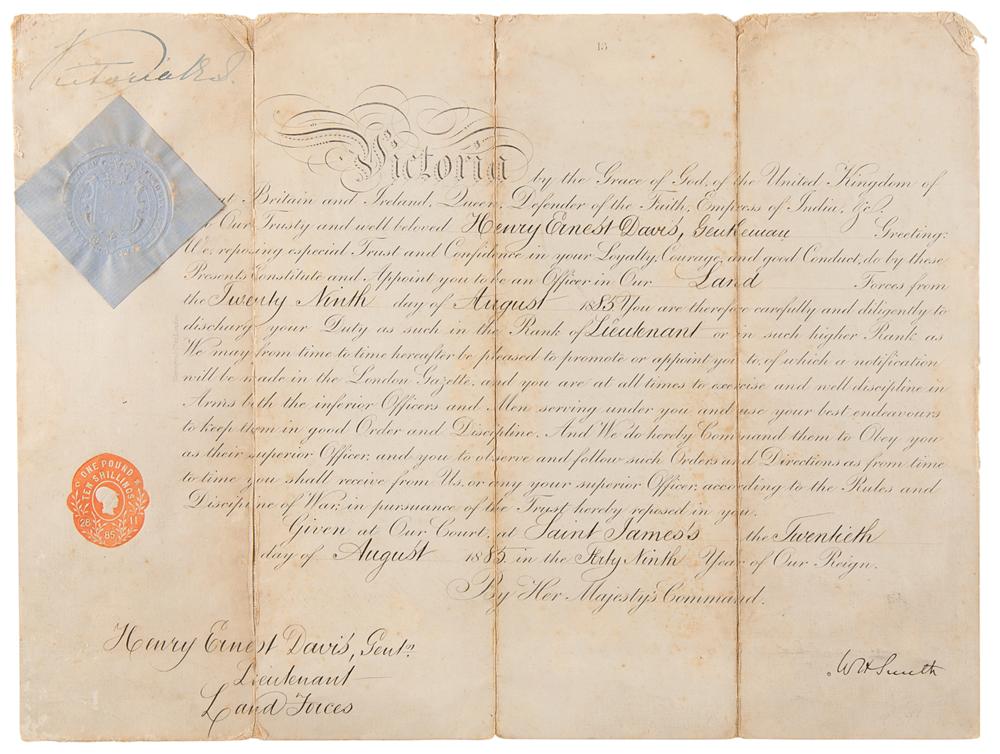 Victoria R I
13
Victoria by the Grace of God, of the United Kingdom of
Britain and Ireland, Queen, Defender of the Faith, Empress of India, &c.
Our Trusty and well beloved Henry Ernest Davis, Gentleman Greeting:
We, reposing especial Trust and Confidence in your Loyalty, Courage, and good Conduct, do by these
Presents Constitute and Appoint you to be an Officer in Our Land Forces from
the Twenty Ninth day of August 1885. You are therefore carefully and diligently to
discharge your Duty as such in the Rank of Lieutenant or in such higher Rank as
We may from time to time hereafter be pleased to promote or appoint you to, of which a notification
will be made in the London Gazette, and you are at all times to exercise and well discipline in
Arms both the inferior Officers and Men serving under you and use your best endeavours
to keep them in good Order and Discipline. And We do hereby Command them to Obey you
as their superior Officer, and you to observe and follow such Orders and Directions as from time
to time you shall receive from Us, or any your superior Officer, according to the Rules and
Discipline of War, in pursuance of the Trust hereby reposed in you.
Given at Our Court, at Saint James's the Twentieth
day of August 1885. in the Forty Ninth Year of Our Reign.
By Her Majesty's Command.
ONE POUND
TEN SHILLINGS
28 11
85
Henry Ernest Davis, Gentn.
Lieutenant
Land Forces
W H Smith